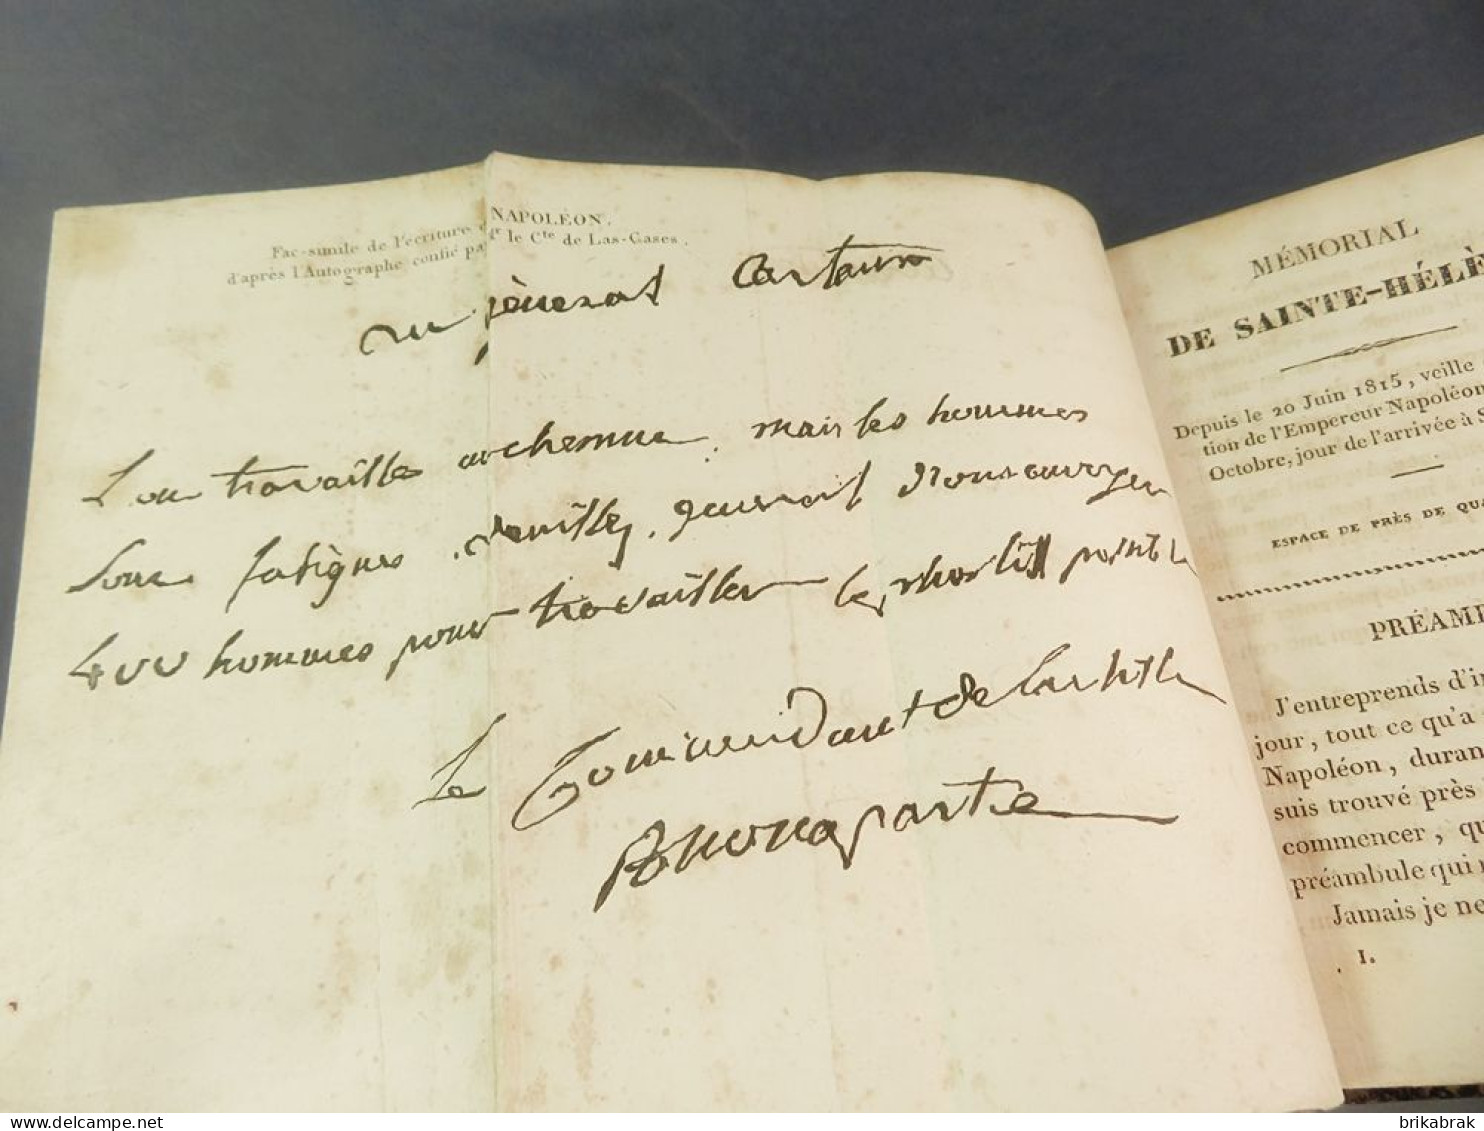 Fac-simile de l'écriture de NAPOLÉON.
d'après l'Autographe confié par le Cte de Las-Cases.
au général Cartaux
L'on travaille au chemin, mais les hommes
sont fatigués
400 hommes pour travailler
Le Commandant de l'artillerie
Buonaparte
MÉMORIAL
DE SAINTE-HÉLÈ
Depuis le 20 Juin 1815, veille
tion de l'Empereur Napoléon
Octobre, jour de l'arrivée à S
ESPACE DE PRÈS DE QUA
PRÉAMB
J'entreprends d'in
jour, tout ce qu'a
Napoléon, duran
suis trouvé près
commencer, qu
préambule qui
Jamais je ne
I.
brikabrak
www.delcampe.net